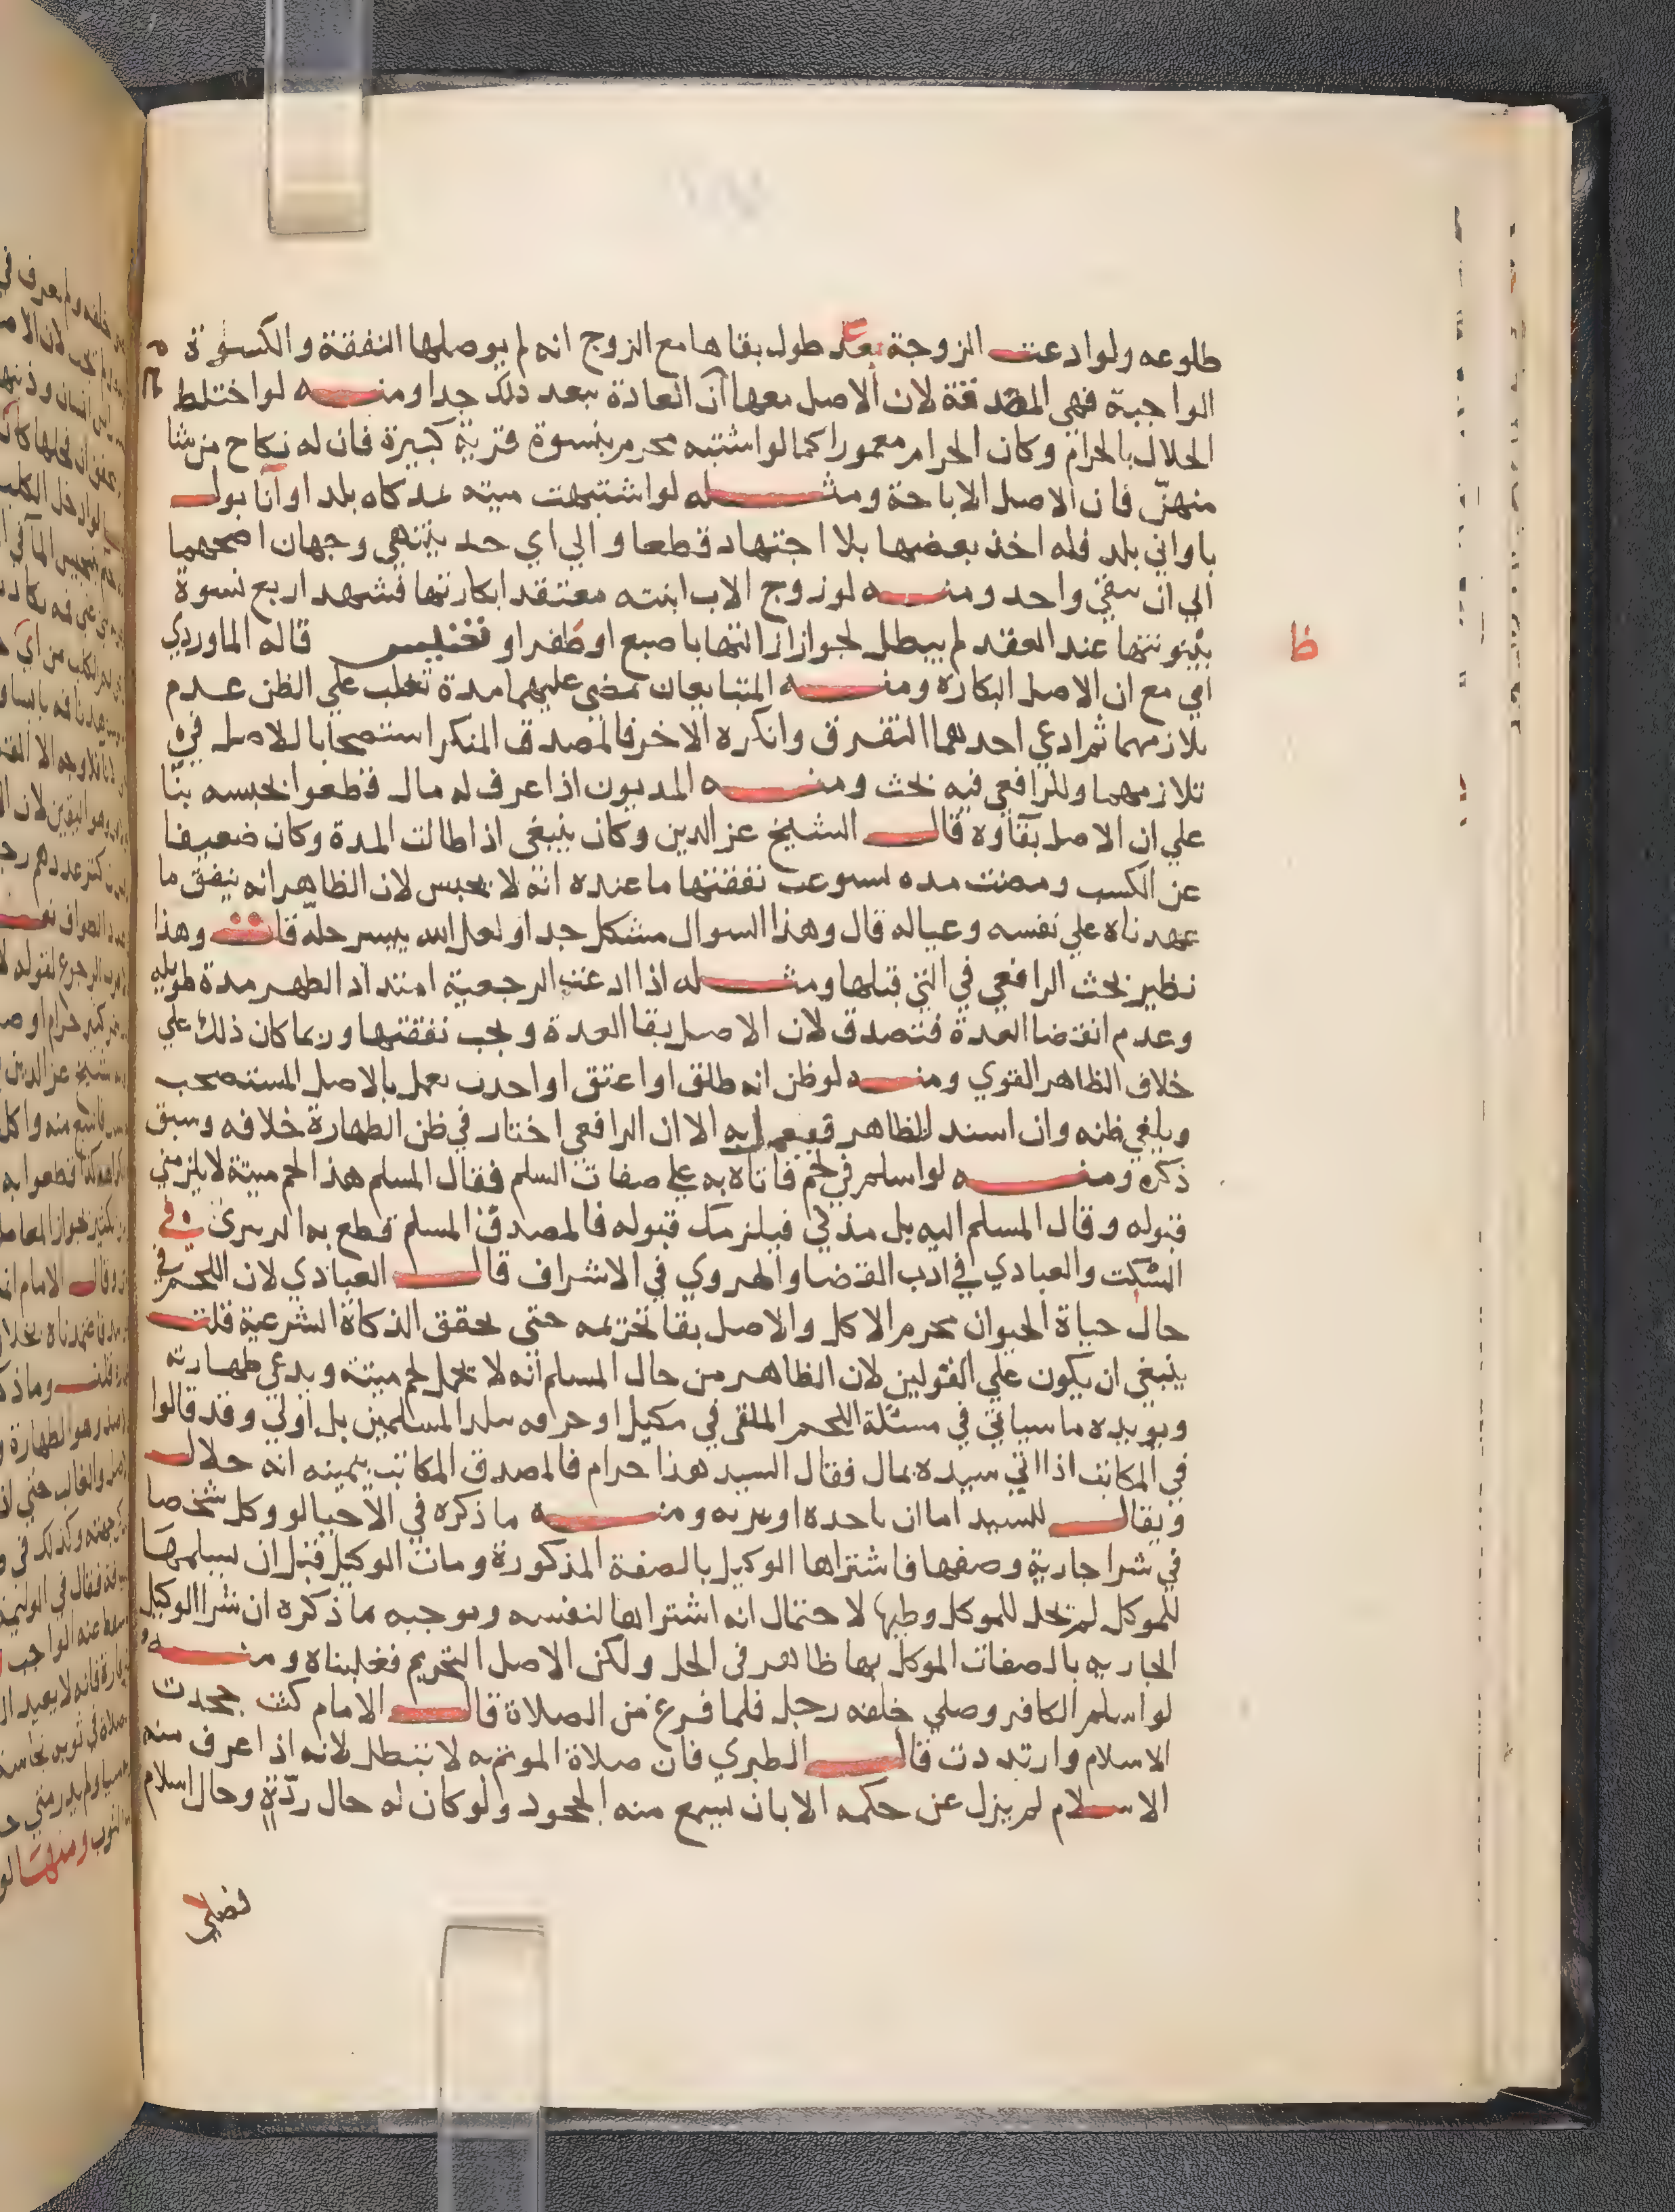 طلوعه ولو ادعت الزوجة بعد طول بقاها مع الزوج انه لم يوصلها النفقة والكسوة
الواجبة فهي المصدقة لان الاصل معها ان العادة تبعد ذلك جدا ومنه لو اختلط
الحلال بالحرام وكان الحرام مغمورا كما لو اشتبه محرم بنسوة قرية كبيرة فان له نكاح من شا
منهن فان الاصل الاباحة ومثله لو اشتبهت ميته بمذكاه بلد او انا بول
باواني بلد فله اخذ بعضها بلا اجتهاد قطعا والي اي حد ينتهي وجهان اصحهما
الي ان يبقي واحد ومنه لو زوج الاب ابنته معتقدا بكارتها فشهد اربع نسوة
بثيوبتها عند العقد لم يبطل لجواز ازالتها باصبع او ظفر او قاله الماوردي
اي مع ان الاصل البكارة ومنه المتبايعان يمضي عليهما مدة تغلب علي الظن عدم
تلازمهما ثم ادعي احدهما التفرق وانكره الاخر فالمصدق المنكر استصحابا للاصل في
تلازمهما وللرافعي فيه بحث ومنه المديون اذا عرف له مال فقطعوا بحبسه بنا
علي ان الاصل بقاوه قال الشيخ عز الدين وكان ينبغي اذا طالت المدة وكان ضعيفا
عن الكسب ومضت مده تستوعب نفقتها ما عنده انه لا يحبس لان الظاهر انه ينفق ما
عهدناه علي نفسه وعياله قال وهذا السوال مشكل جدا ولعل الله ييسر حله قلت وهذا
نظير بحث الرافعي في التي قبلها ومثله اذا ادعت الرجعية امتداد الطهر مدة طويله
وعدم انقضا العدة فتصدق لان الاصل بقا العدة وتجب نفقتها وربما كان ذلك علي
خلاف الظاهر القوي ومنه لو ظن انه طلق او اعتق او احدث يعمل بالاصل المستصحب
ويلغي ظنه وان اسند للظاهر الا ان الرافعي اختار في ظن الطهارة خلافه وسبق
ذكره ومنه لو اسلم في لحم فاتاه به علي صفات السلم فقال المسلم هذا لحم ميتة لا يلزمني
قبوله وقال المسلم اليه بل مذكي فيلزمك قبوله فالمصدق المسلم قطع به الزبيري في
المسكت والعبادي في ادب القضا والهروي في الاشراف قال العبادي لان اللحم في
حال حياة الحيوان محرم الاكل والاصل بقا تحريمه حتي يحقق الذكاة الشرعية قلت
ينبغي ان يكون علي القولين لان الظاهر من حال المسلم انه لا يحمل لحم ميتة ويدعي طهارته
ويويده ما سياتي في مسئلة اللحم الملقي في مكتل او خرقه ببلد المسلمين بل اولي وقد قالوا
في المكاتب اذا اتي سيده بمال فقال السيد هذا حرام فالمصدق المكاتب بيمينه انه حلال
ويقال للسيد اما ان تاخده او تبريه ومنه ما ذكره في الاحيا لو وكل شخصا
في شرا جارية وصفها فاشتراها الوكيل بالصفة المذكورة ومات الوكيل قبل ان يسلمها
للموكل لم تحل للموكل وطيها لاحتمال انه اشتراها لنفسه وموجبه ما ذكره ان شرا الوكيل
الجاريه بالصفات الموكل بها ظاهر في الحل ولكن الاصل التحريم فغلبناه ومنه
لو اسلم الكافر وصلي خلفه رجل فلما فرغ من الصلاة قال الامام كنت جحدت
الاسلام وارتددت قال الطبري فان صلاة الموتم به لا تبطل لانه اذا عرف منه
الاسلام لم يزل عن حكمه الا بان يسمع منه الجحود ولو كان له حال ردة وحال اسلام
فصلي
ظ